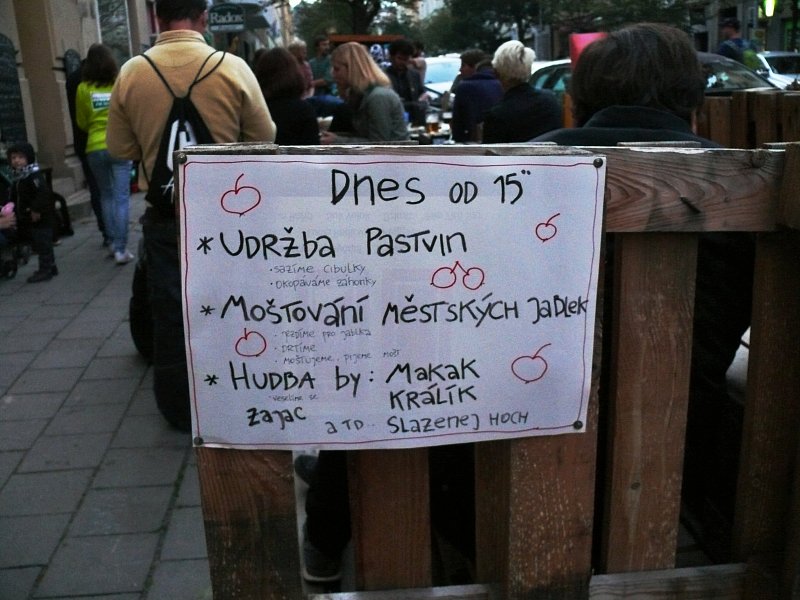 Radox
Dnes od 15°°
* Udržba Pastvin
• sazíme cibulky
• okopáváme záhonky
* Moštování městských jablek
• jezdíme pro jablka
• drtíme
• moštujeme.. pijeme mošt
* Hudba by: Makak
• veselíme se
Králík
Zajac
atd.. Slazenej hoch